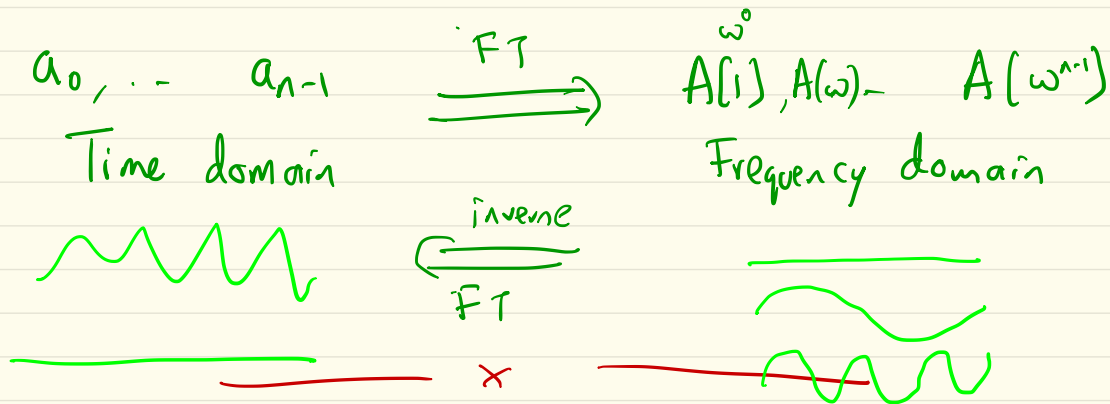 a₀, .. - aₙ₋₁ FT ω⁰ A(1), A(ω) - A(ωⁿ⁻¹)
Time domain Frequency domain
inverse
FT
×